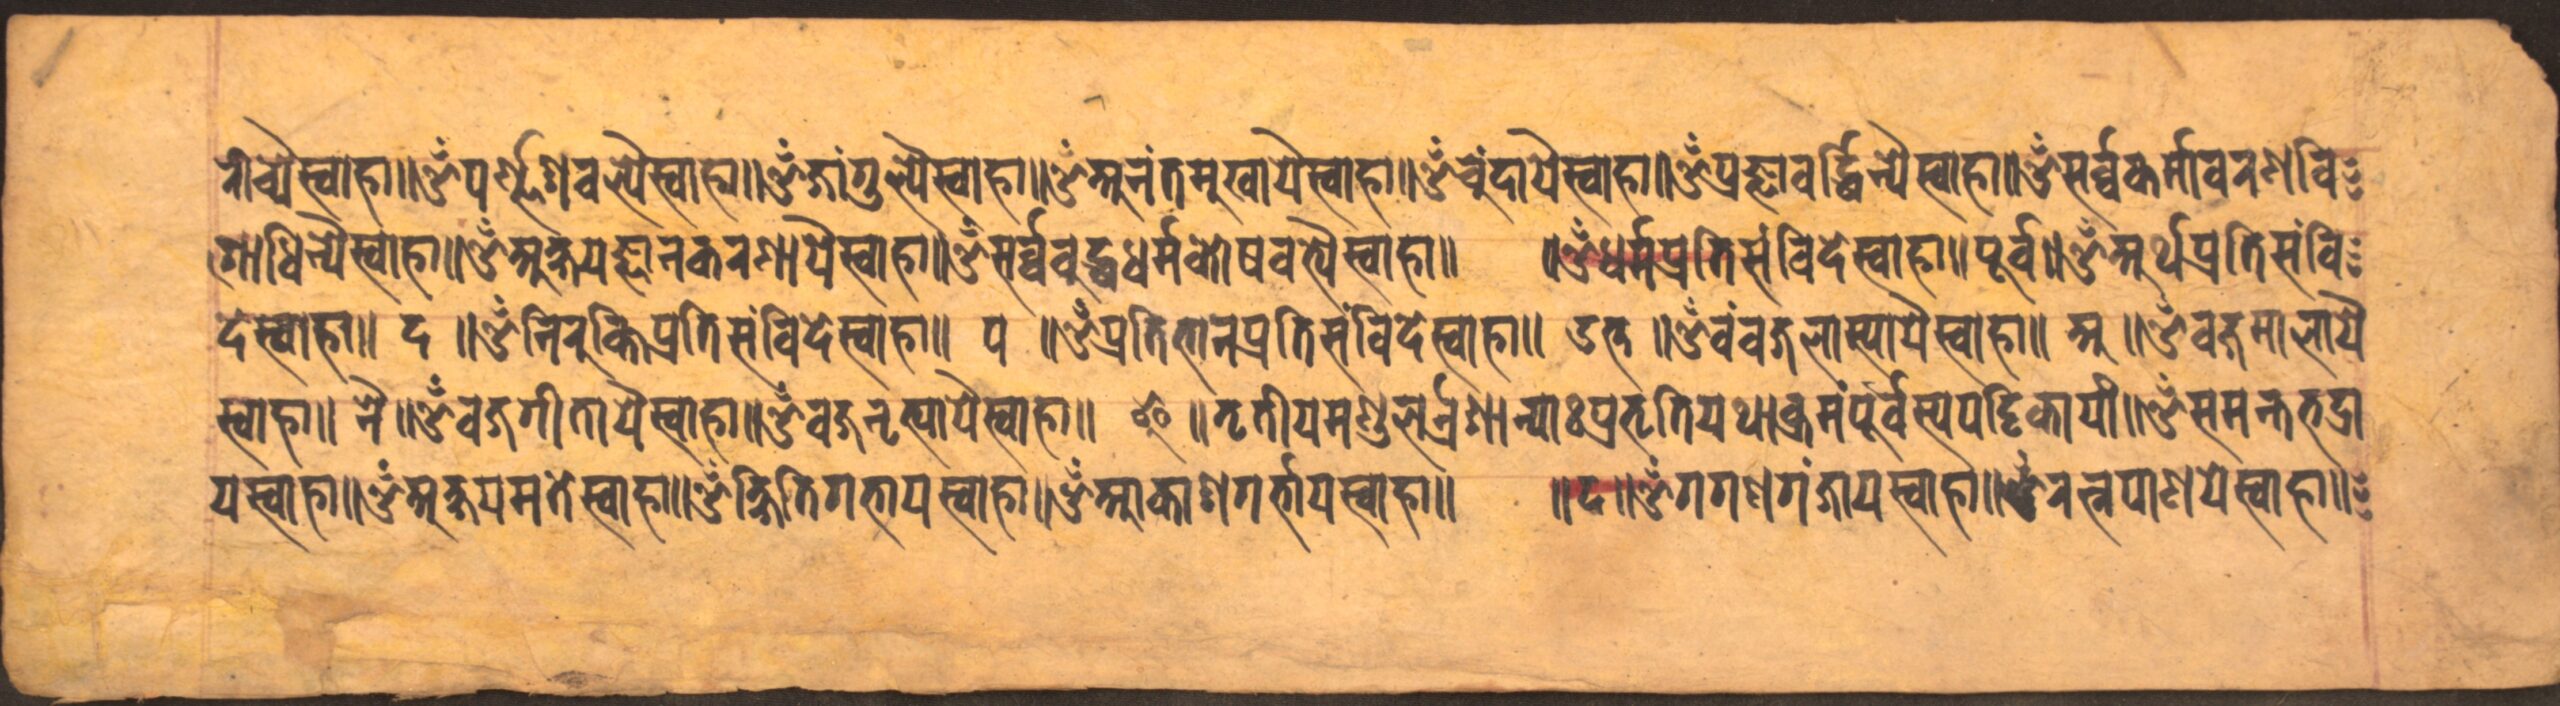 रीच्यै स्वाहा॥ ॐ पर्ण्णशवर्य्यै स्वाहा॥ ॐ जांगुल्यै स्वाहा॥ ॐ अनंतमुखायै स्वाहा॥ ॐ चुंदायै स्वाहा॥ ॐ प्रज्ञावर्द्धिन्यै स्वाहा॥ ॐ सर्व्वकर्मावरणवि
शोधिन्यै स्वाहा॥ ॐ अक्षयज्ञानकरण्डायै स्वाहा॥ ॐ सर्व्वबुद्धधर्मकोषवत्यै स्वाहा॥ ॥ ॐ धर्मप्रतिसंविदे स्वाहा॥ पूर्व॥ ॐ अर्थप्रतिसंवि
दे स्वाहा॥ द ॥ ॐ निरुक्तिप्रतिसंविदे स्वाहा॥ प ॥ ॐ प्रतिभानप्रतिसंविदे स्वाहा॥ उत्त ॥ ॐ वंवज्रलास्यायै स्वाहा॥ अ ॥ ॐ वज्रमालायै
स्वाहा॥ नै ॥ ॐ वज्रगीतायै स्वाहा॥ ॐ वज्रनृत्यायै स्वाहा॥ ॥ तृतीयमण्डल प्रभृति यथाक्रमं पूर्वस्य पट्टिकायां॥ ॐ समन्तभद्रा
य स्वाहा॥ ॐ अक्षयमते स्वाहा॥ ॐ क्षितिगर्भाय स्वाहा॥ ॐ आकाशगर्भाय स्वाहा॥ ॥ द ॥ ॐ गगणगंजाय स्वाहा॥ ॐ रत्नपाणये स्वाहा॥